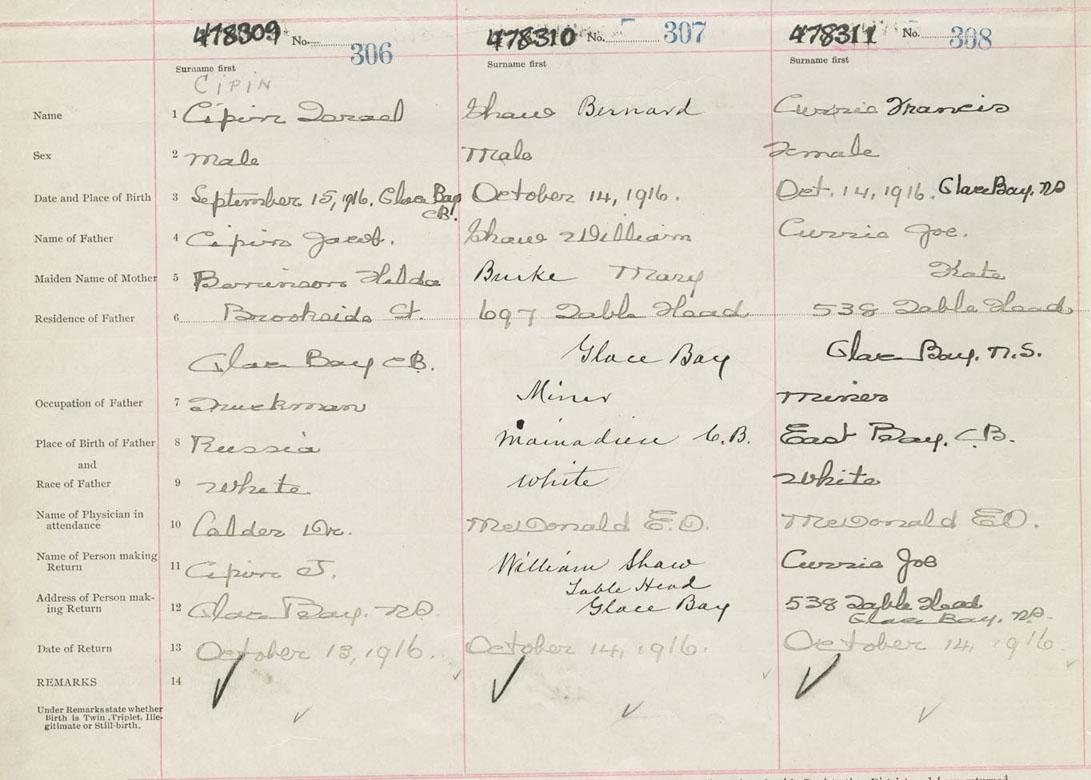 478309 No. 306 478310 No. 307 478311 No. 308
Surname first Surname first Surname first
CIPIN
Name 1 Cipin Israel Shaw Bernard Currie Francis
Sex 2 Male Male Female
Date and Place of Birth 3 September 15, 1916. Glace Bay October 14, 1916. Oct. 14, 1916. Glace Bay, NS
CB.
Name of Father 4 Cipin Jacob. Shaw William Currie Joe.
Maiden Name of Mother 5 Hilda Burke Mary Kate
Residence of Father 6 Brookside St. 697 Table Head 538 Table Head
Glace Bay CB. Glace Bay Glace Bay, N.S.
Occupation of Father 7 Truckman Miner Miner
Place of Birth of Father 8 Russia Mainadieu C.B. East Bay, CB.
and
Race of Father 9 White White White
Name of Physician in
attendance 10 Calder Dr. McDonald E.O. McDonald EO.
Name of Person making
Return 11 Cipin J. William Shaw Currie Joe
Address of Person mak-
ing Return 12 Glace Bay, NS. Table Head 538 Table Head
Glace Bay Glace Bay, NS.
Date of Return 13 October 13, 1916. October 14, 1916. October 14, 1916
REMARKS 14
Under Remarks state whether
Birth is Twin, Triplet, Ille-
gitimate or Still-birth.